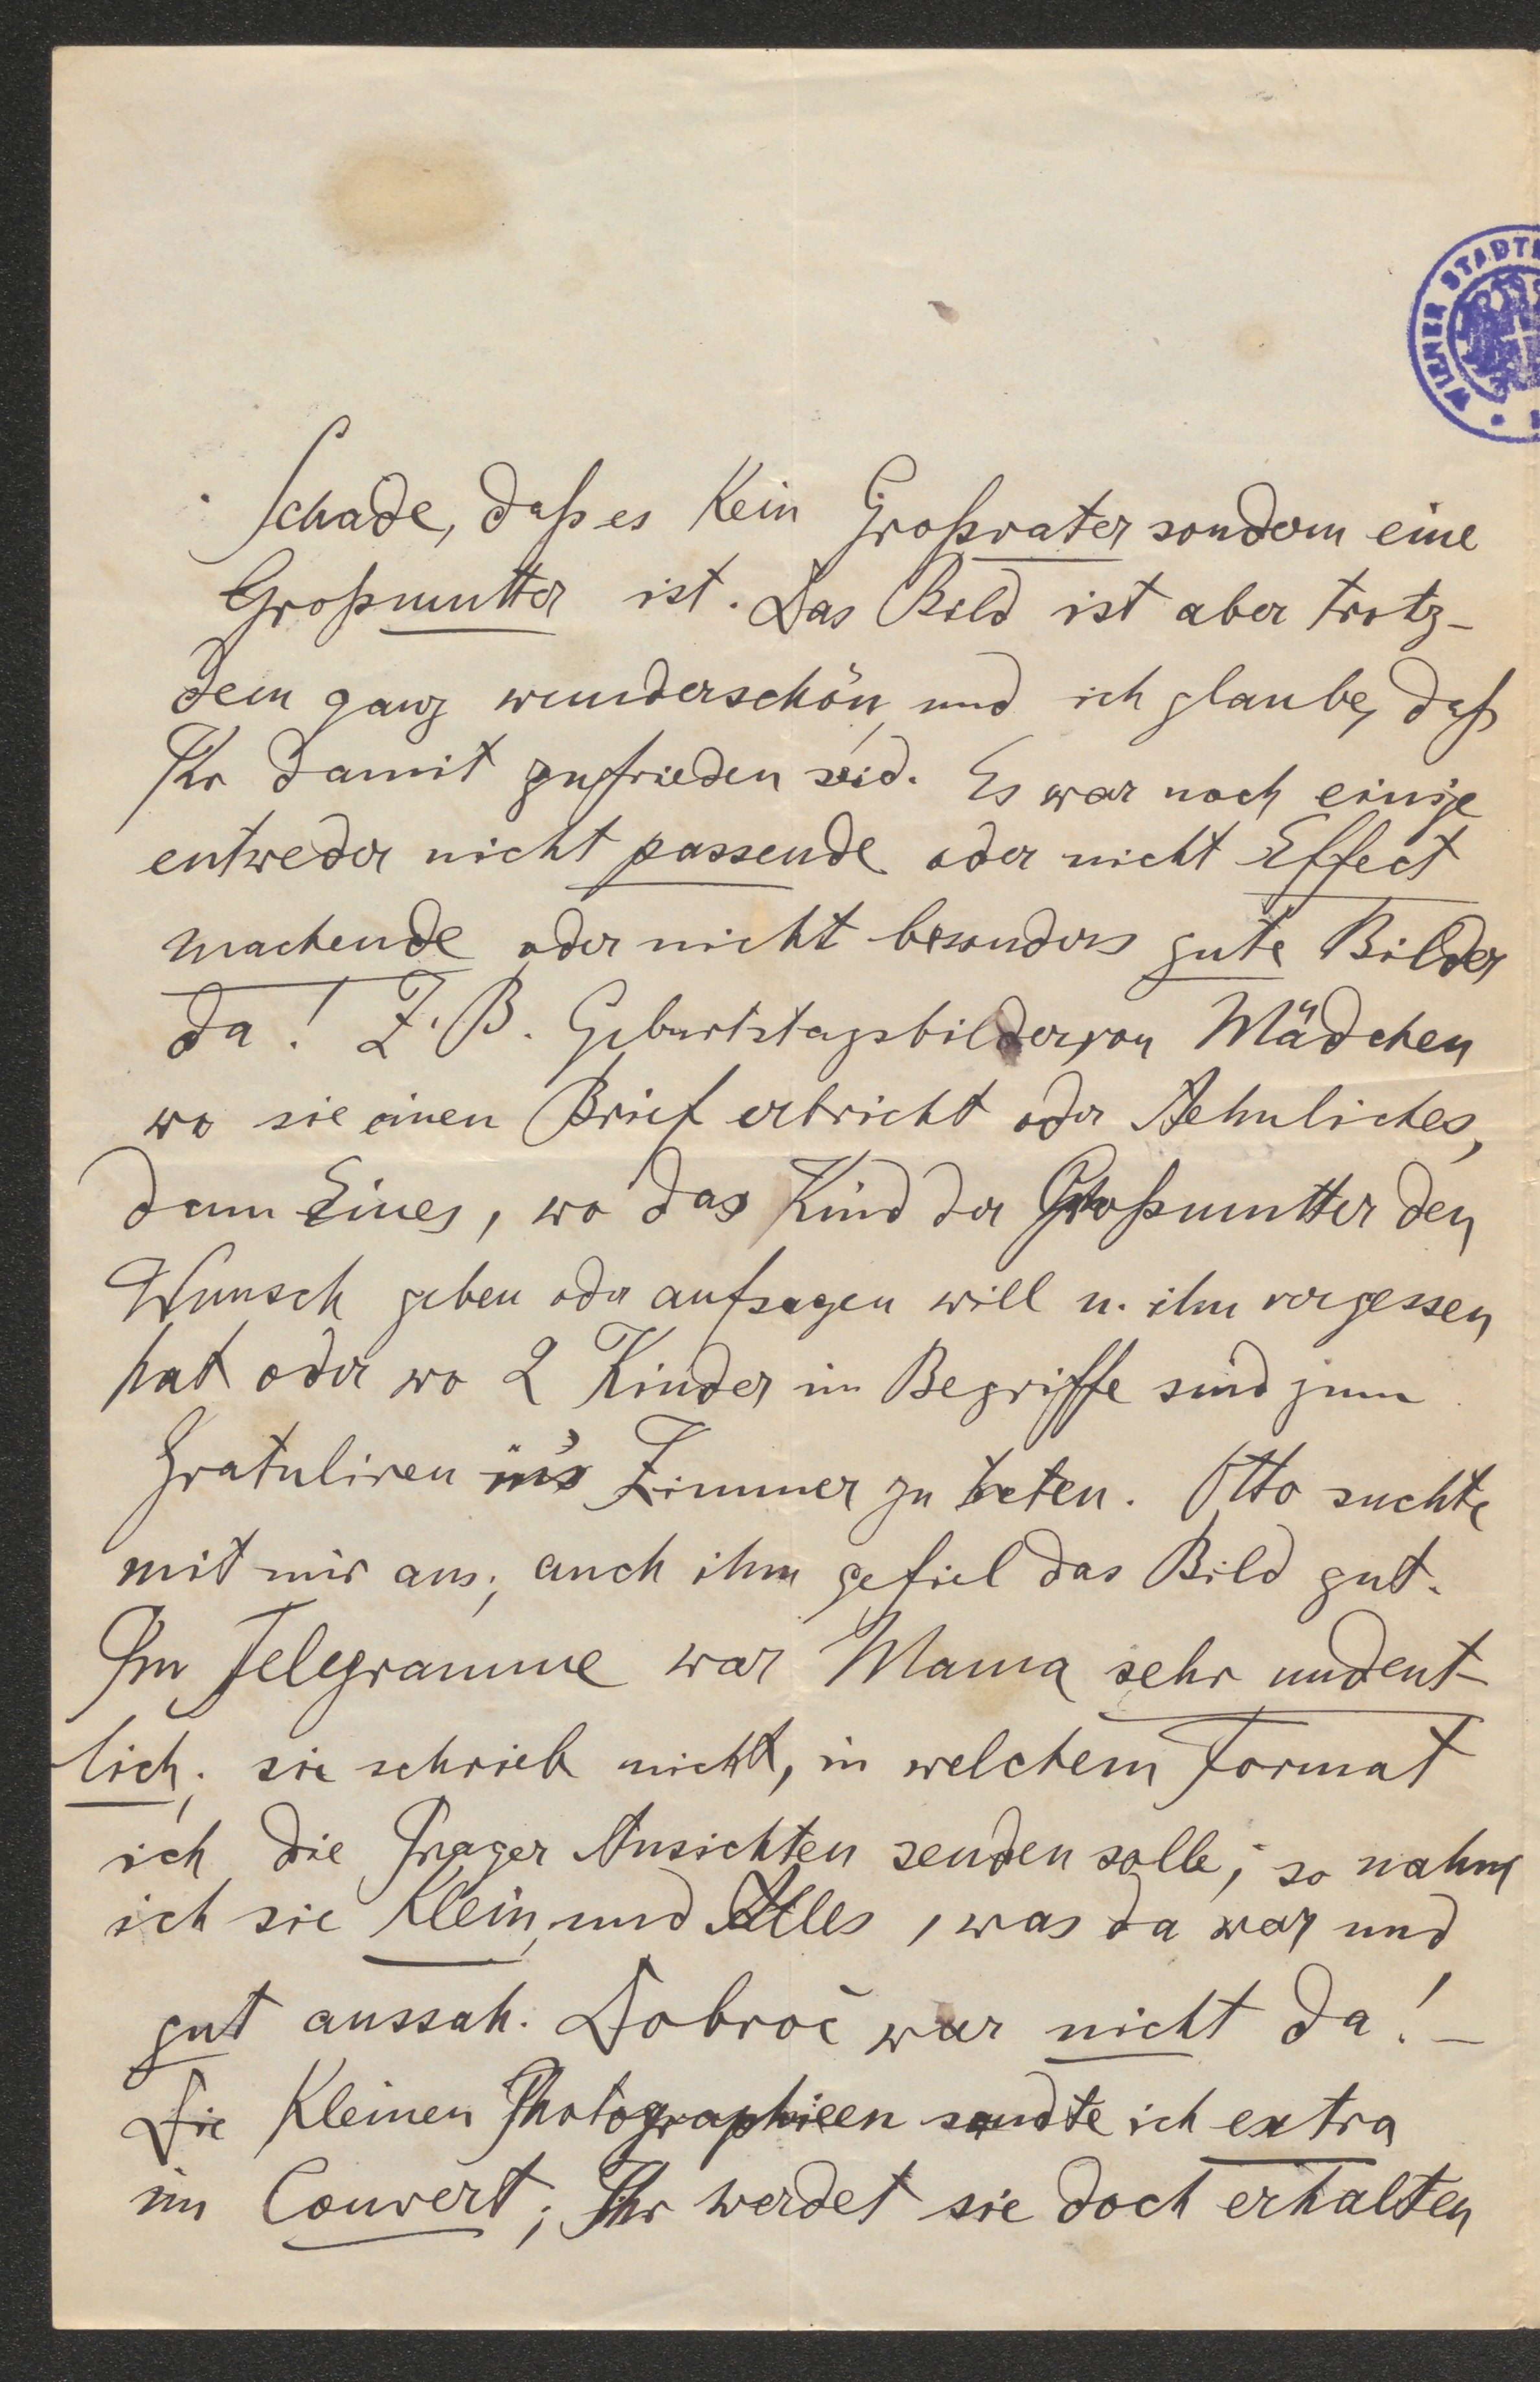 WIENER STADT
Schade, daß es kein Großvater sondern eine
Großmutter ist. Das Bild ist aber trotz-
dem ganz wunderschön und ich glaube, daß
Ihr damit zufrieden seid. Es war noch einige
entweder nicht passende oder nicht Effect
machende oder nicht besonders gute Bilder
da! Z. B. Geburtstagsbilder, von Mädchen
wo sie einen Brief erbricht oder Aehnliches,
dann Eines, wo das Kind der Großmutter den
Wunsch geben oder aufsagen will u. ihn vergessen
hat oder wo 2 Kinder im Begriffe sind zum
Gratuliren in's Zimmer zu treten. Otto suchte
mit mir aus; auch ihm gefiel das Bild gut.
Im Telegramme war Mama sehr undeut-
lich; sie schrieb nicht, in welchem Format
ich die Prager Ansichten senden solle; so nahm
ich sie klein, und Alles, was da war und
gut aussah. Dobroč war nicht da! -
Die kleinen Photographieen sandte ich extra
im Couvert; Ihr werdet sie doch erhalten